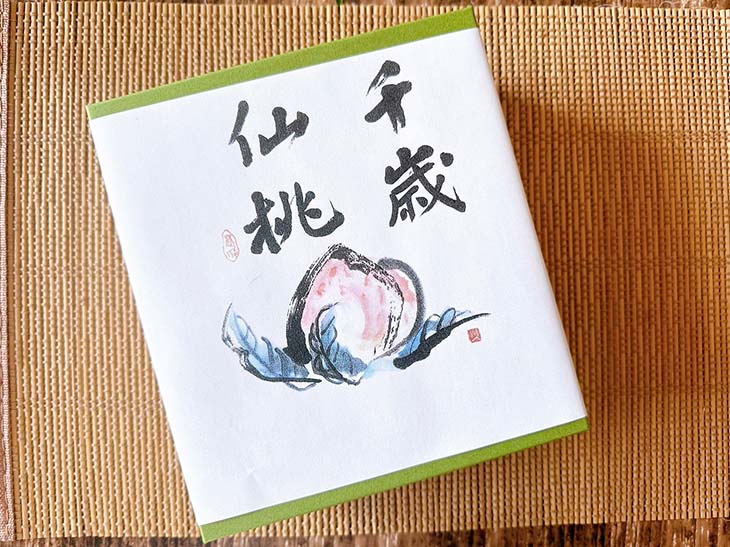 千歳
仙桃